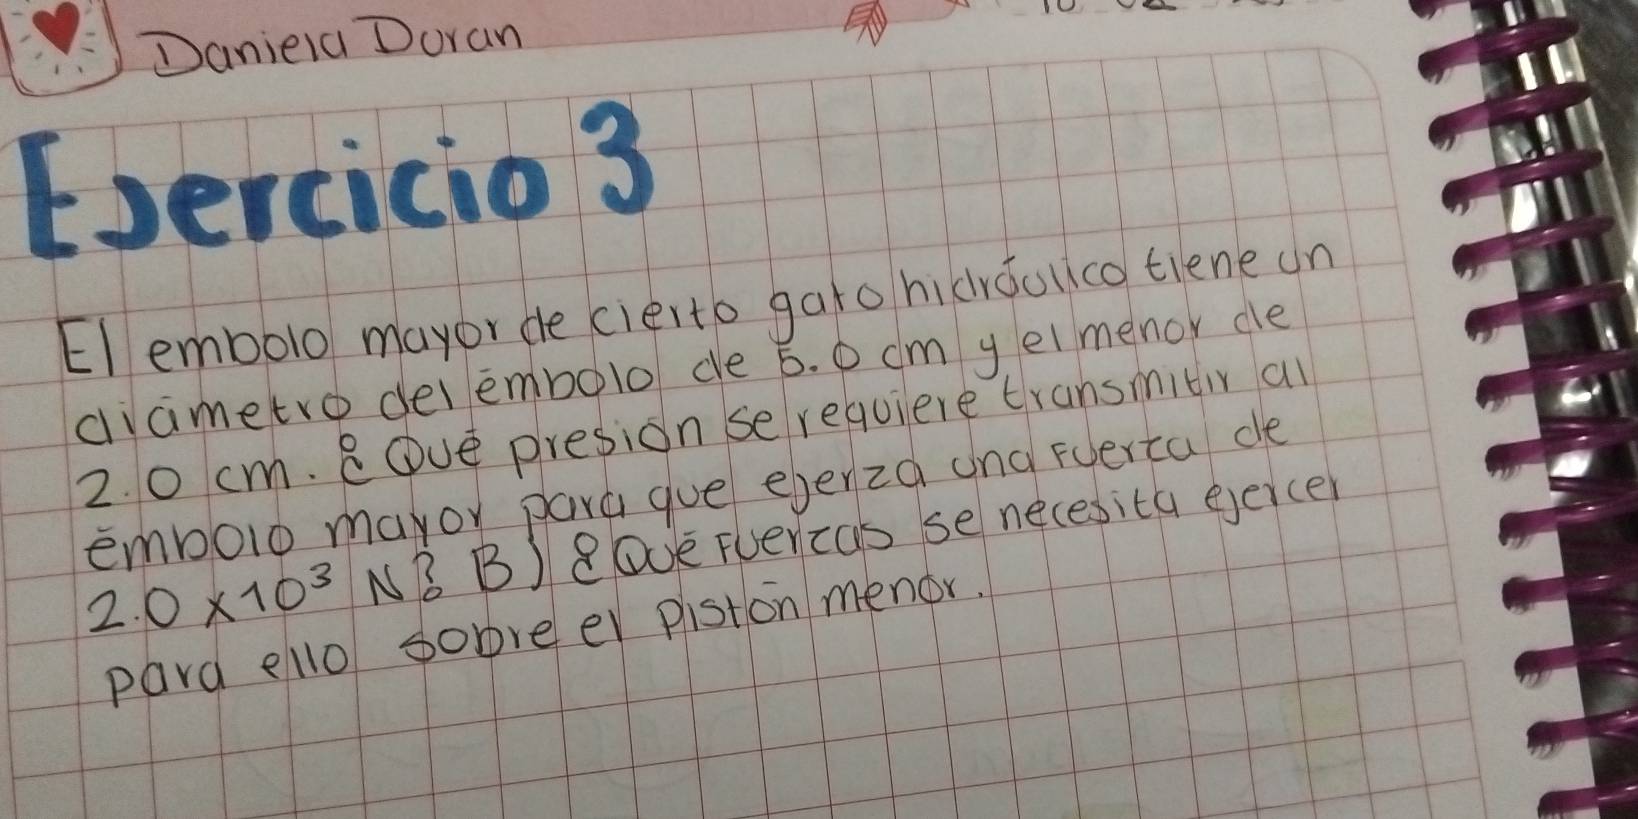 Daniela Duran
Ejercicio 3
El embolo mayor de cierto gato hidráulico tiene un
diámetro del émbolo de 5.0 cm y el menor de
2.0 cm. ¿Qué presión se requiere transmitir al
émbolo mayor para que ejerza una fuerza de
2.0 x 10³ N? B) ¿Qué fuerzas se necesita ejercer
para ello sobre el pistón menor.